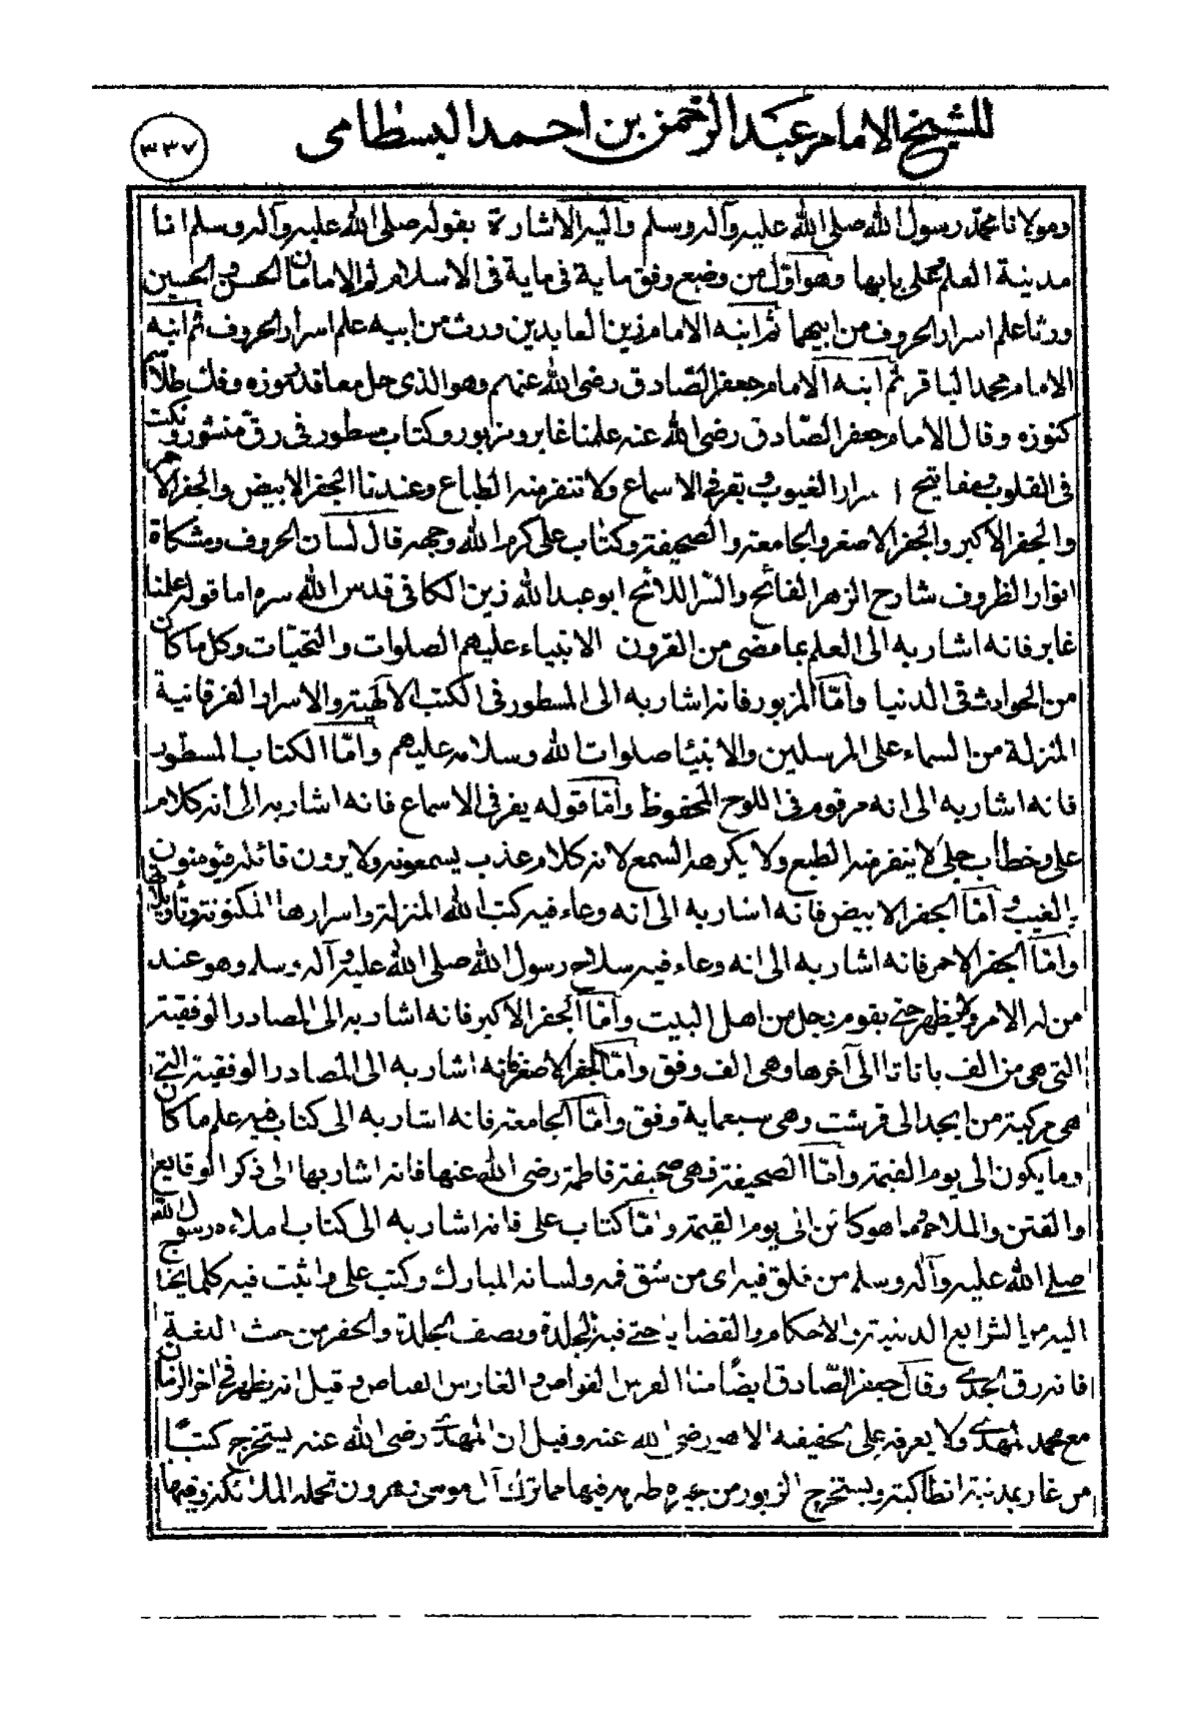 للشيخ الامام عبد الرحمن بن احمد البسطامى
٣٣٧
ومولانا محمد رسول الله صلى الله عليه وآله وسلم واليه الاشارة بقوله صلى الله عليه وآله وسلم انا
مدينة العلم وعلى بابها وهو اول من وضع وفق ماية فى ماية فى الاسلام ثم الامامان الحسن والحسين
ورثا علم اسرار الحروف من ابيهما ثم ابنه الامام زين العابدين ورث من ابيه علم اسرار الحروف ثم ابنه
الامام محمد الباقر ثم ابنه الامام جعفر الصادق رضى الله عنهم وهو الذى حل معاقد رموزه وفك طلاسم
كنوزه وقال الامام جعفر الصادق رضى الله عنه علمنا غابر ومزبور وكتاب مسطور فى رق منشور ونكت
فى القلوب ومفاتيح اسرار الغيوب ونقر فى الاسماع ولا تنفر منه الطباع وعندنا الجفر الابيض والجفر الاحمر
والجفر الاكبر والجفر الاصغر والجامعة والصحيفة وكتاب على كرم الله وجهه قال لسان الحروف ومشكاة
انوار الظروف شارح الزهر الفائح والسر اللائح ابو عبد الله زين الكافى قدس الله سره اما قوله علمنا
غابر فانه اشار به الى العلم بما مضى من القرون الانبياء عليهم الصلوات والتحيات وكل ما كان
من الحوادث فى الدنيا واما المزبور فانه اشار به الى المسطور فى الكتب الالهية والاسرار الفرقانية
المنزلة من السماء على المرسلين والانبيا صلوات الله وسلامه عليهم واما الكتاب المسطور
فانه اشار به الى انه مرقوم فى اللوح المحفوظ واما قوله يقر فى الاسماع فانه اشار به الى انه كلام
على وخطاب جلى لا ينفر منه الطبع ولا يكرهه السمع لانه كلام عذب يسمعونه ولا يرون قائله فيؤمنون
بالغيب واما الجفر الابيض فانه اشار به الى انه وعاء فيه كتب الله المنزلة واسرارها المكنونة وتأويلاتها
واما الجفر الاحمر فانه اشار به الى انه وعاء فيه سلاح رسول الله صلى الله عليه وآله وسلم وهو عند
من له الامر ولا يظهر حتى يقوم رجل من اهل البيت واما الجفر الاكبر فانه اشار به الى المصادر الوفقية
التى هى من الف با تا ثا الى آخرها وهى الف وفق واما الجفر الاصغر فانه اشار به الى المصادر الوفقية التى
هى مركبة من ابجد الى قرشت وهى سبعماية وفق واما الجامعة فانه اشار به الى كتاب فيه علم ما كان
وما يكون الى يوم القيمة واما الصحيفة فهى صحيفة فاطمة رضى الله عنها فانه اشار بها الى ذكر الوقايع
والفتن والملاحم وما هو كائن الى يوم القيمة واما كتاب على فانه اشار به الى كتاب املاه رسول الله
صلى الله عليه وآله وسلم من فلق فيه اى من شق فمه ولسانه المبارك وكتب على واثبت فيه كلما يحتاج
اليه من الشرايع الدينية والاحكام والقضايا حتى فيه الجلدة ونصف الجلدة والجفر من حيث اللغة
فانه رق الجدى وقال جعفر الصادق ايضا منا الفرس الغواص والفارس القناص وقيل انه يظهر فى آخر الزمان
مع محمد المهدى ولا يعرفه على الحقيقة الا هو رضى الله عنه وقيل ان المهدى رضى الله عنه يستخرج كتبا
من غار بمدينة انطاكية ويستخرج الزبور من بحيرة طبرية فيها مما ترك آل موسى وهرون تحمله الملائكة وفيها